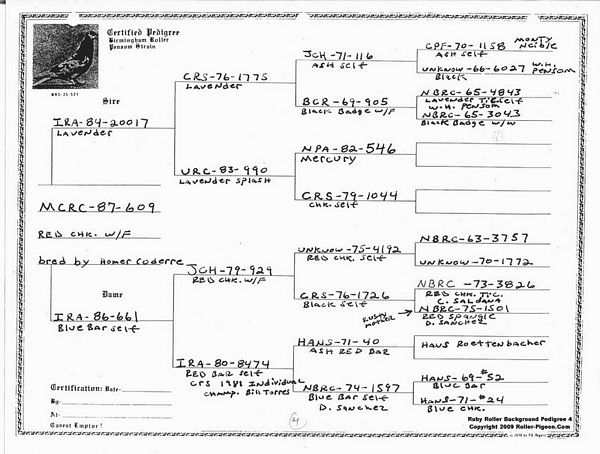 Certified Pedigree
Birmingham Roller
Pensom Strain
Sire
IRA-84-20017
LAVENDER
MCRC-87-609
RED CHK. W/F
bred by Homer Coderre
Dame
IRA-86-661
Blue Bar self
Certification: Date-
By-
At-
Caveat Emptor!
CRS-76-1775
LAVENDER
URC-83-990
LAVENDER SPLASH
JCH-79-929
RED CHK. W/F
IRA-80-8474
RED BAR self
CRS 1981 INDIVIDUAL
CHAMP. Bill Torres
JCH-71-116
ASH self
BCR-69-905
Black Badge W/F
NPA-82-546
Mercury
CRS-79-1044
CHK. self
UNKNOWN-75-4192
RED CHK. self
CRS-76-1726
Black self
RUSTY
MOTHER
HANS-71-40
ASH RED BAR
NBRC-74-1597
Blue Bar self
D. SANCHEZ
CPF-70-1158
MONTY
NEIBLE
UNKNOWN-66-6027
Black
W.H.
PENSOM
NBRC-65-4843
LAVENDER T.C. self
W.H. PENSOM
NBRC-65-3043
Black Badge W/W
NBRC-63-3757
UNKNOWN-70-1772
NBRC-73-3826
RED CHK. T.C.
C. SALDANA
NBRC-75-1501
RED SPANGLE
D. SANCHEZ
HANS ROETTENBACHER
HANS-69-#52
BLUE BAR
HANS-71-#24
Blue CHK.
4
Ruby Roller Background Pedigree 4
Copyright 2009 Roller-Pigeon.Com